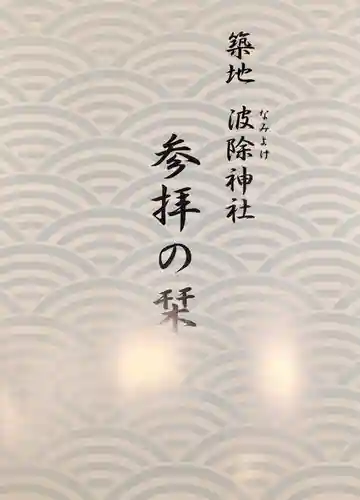 築地 波除神社
なみよけ
参拝の栞